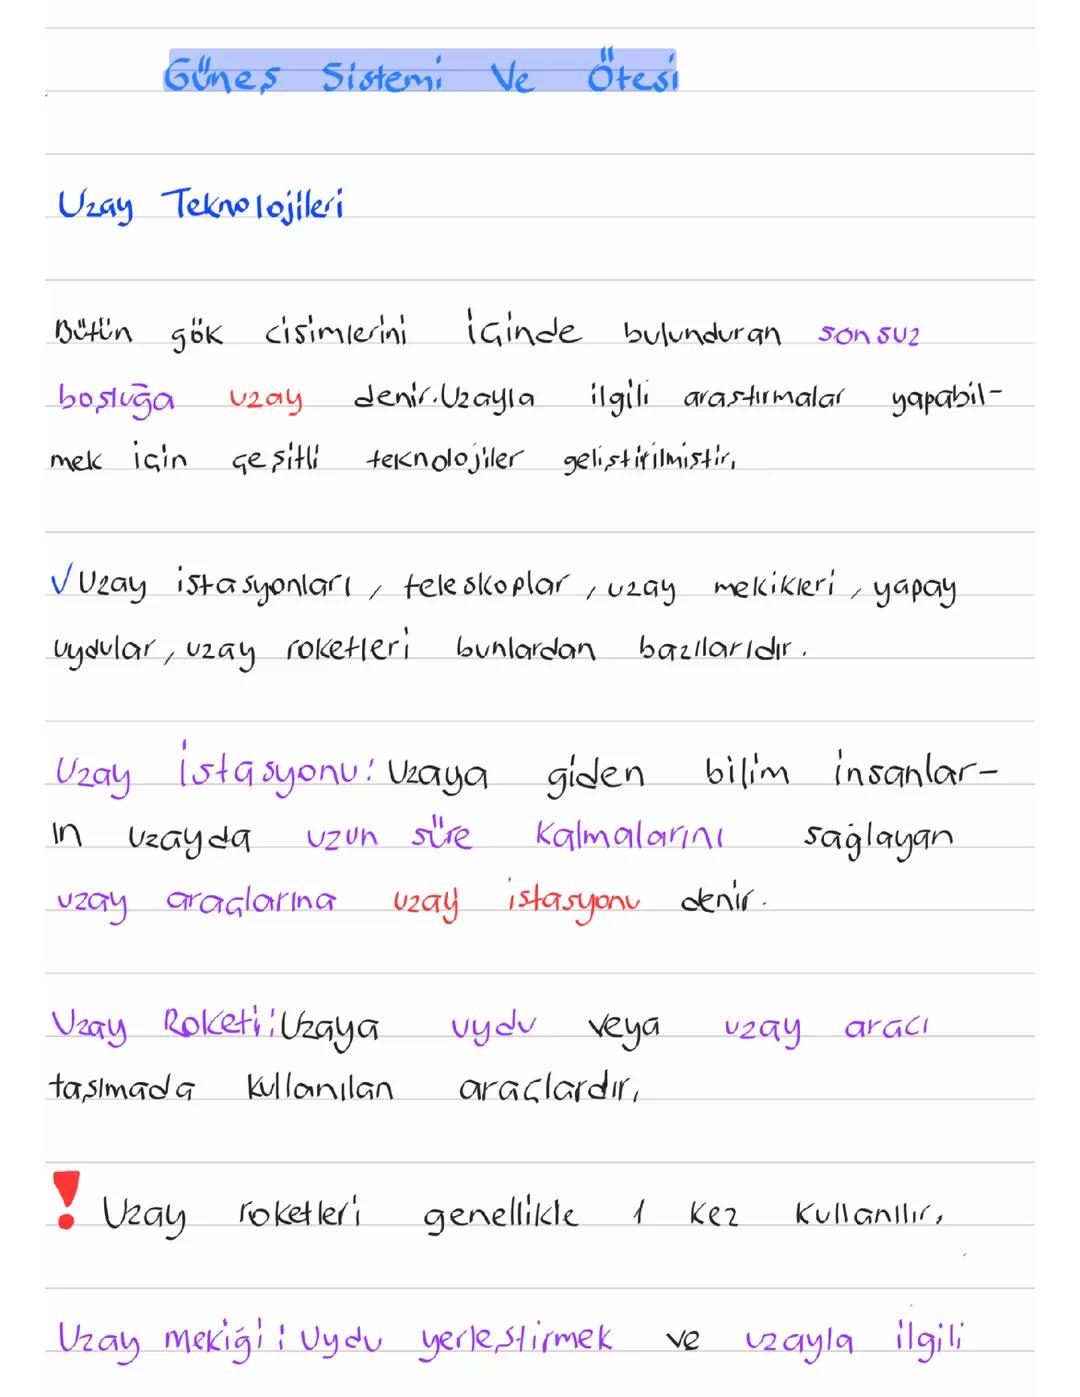 Güneş Sistemi Ve Ötesi
Uzay Teknolojileri
Bütün gök cisimlerini içinde bulunduran sonsuz
boşluğa uzay denir. Uzayla ilgili araştırmalar yapabil-
mek için çeşitli teknolojiler geliştirilmiştir.
✓ Uzay istasyonları, teleskoplar, uzay mekikleri, yapay
uydular, uzay roketleri bunlardan bazılarıdır.
Uzay İstasyonu: Uzaya giden bilim insanlar-
ın uzayda uzun süre kalmalarını sağlayan
uzay araçlarına uzay istasyonu denir.
Uzay Roketi: Uzaya uydu veya uzay aracı
taşımada kullanılan araçlardır.
! Uzay roketleri genellikle 1 kez kullanılır.
Uzay mekiği: Uydu yerleştirmek ve uzayla ilgili